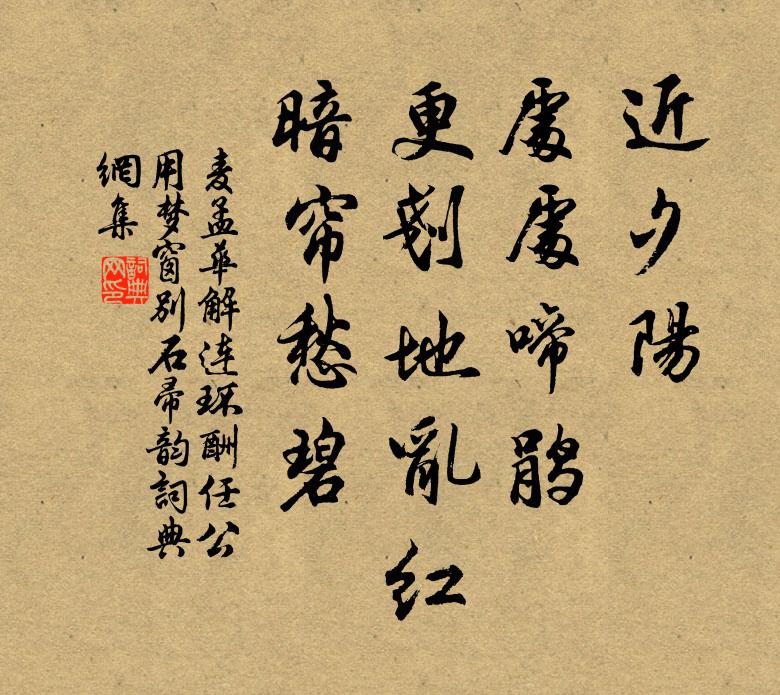 近夕陽
處處啼鵑
更剗地亂紅
暗帘愁碧
麦孟華解連環酬任公
用梦窗别石帚韵詞典
網集
詞典
网印